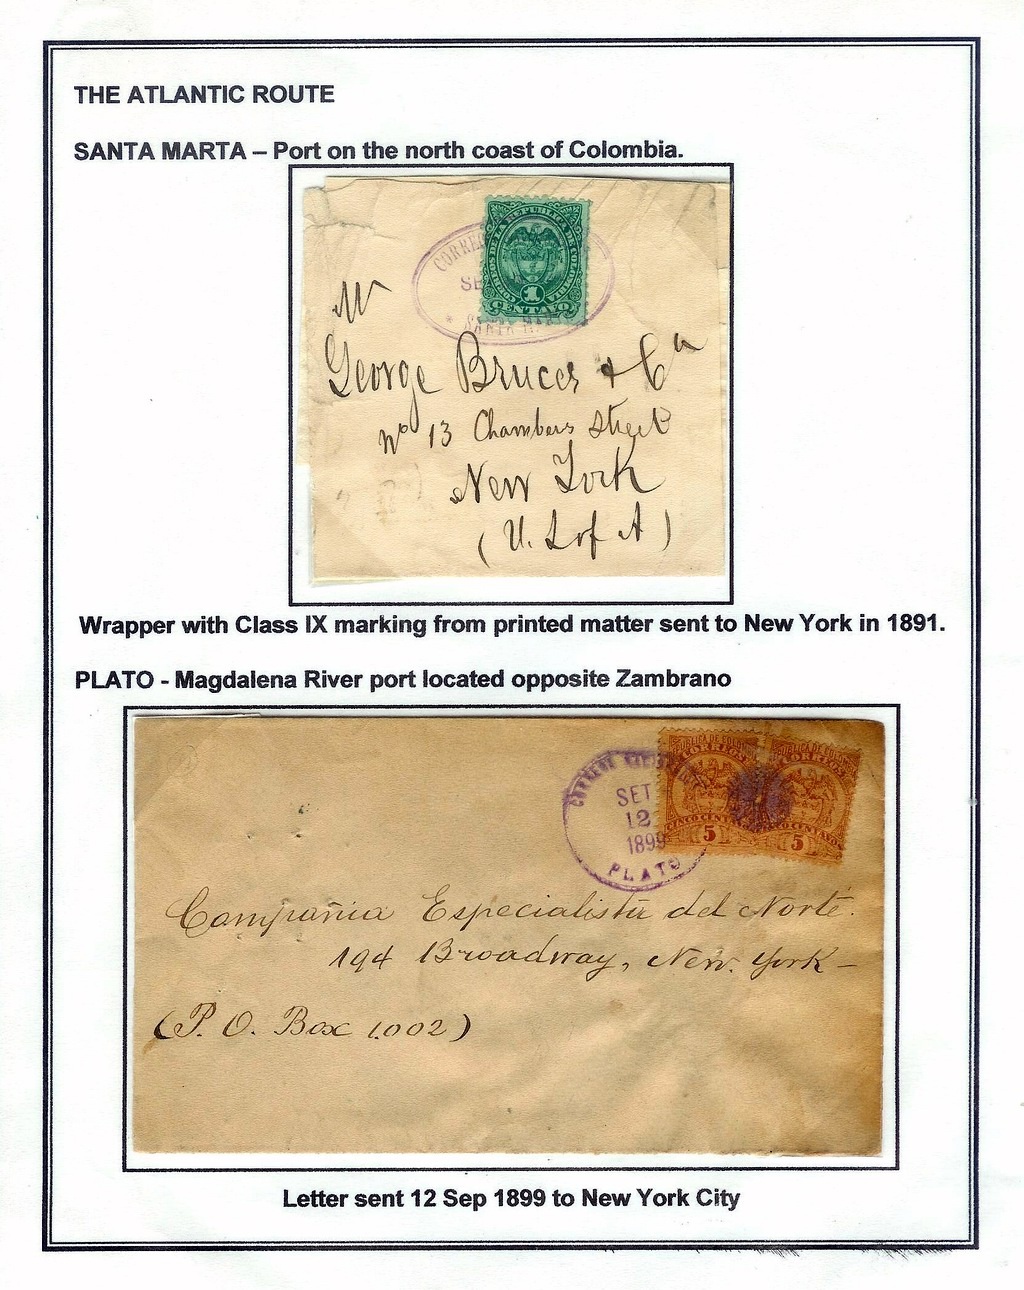 THE ATLANTIC ROUTE
SANTA MARTA – Port on the north coast of Colombia.
CORREOS DE LA REPUBLICA DE COLOMBIA
1
CENTAVO
CORREO
SE
SANTA MAR
Mr
George Bruces & Ca
No 13 Chambers Street
New York
(U. S of A)
Wrapper with Class IX marking from printed matter sent to New York in 1891.
PLATO - Magdalena River port located opposite Zambrano
SET
12
1899
PLATO
CORREOS
CINCO CENTAVOS
5
CORREOS
CINCO CENTAVOS
5
Compañia Especialista del Norte.
194 Broadway, New. York –
(P. O. Box 1.002)
Letter sent 12 Sep 1899 to New York City